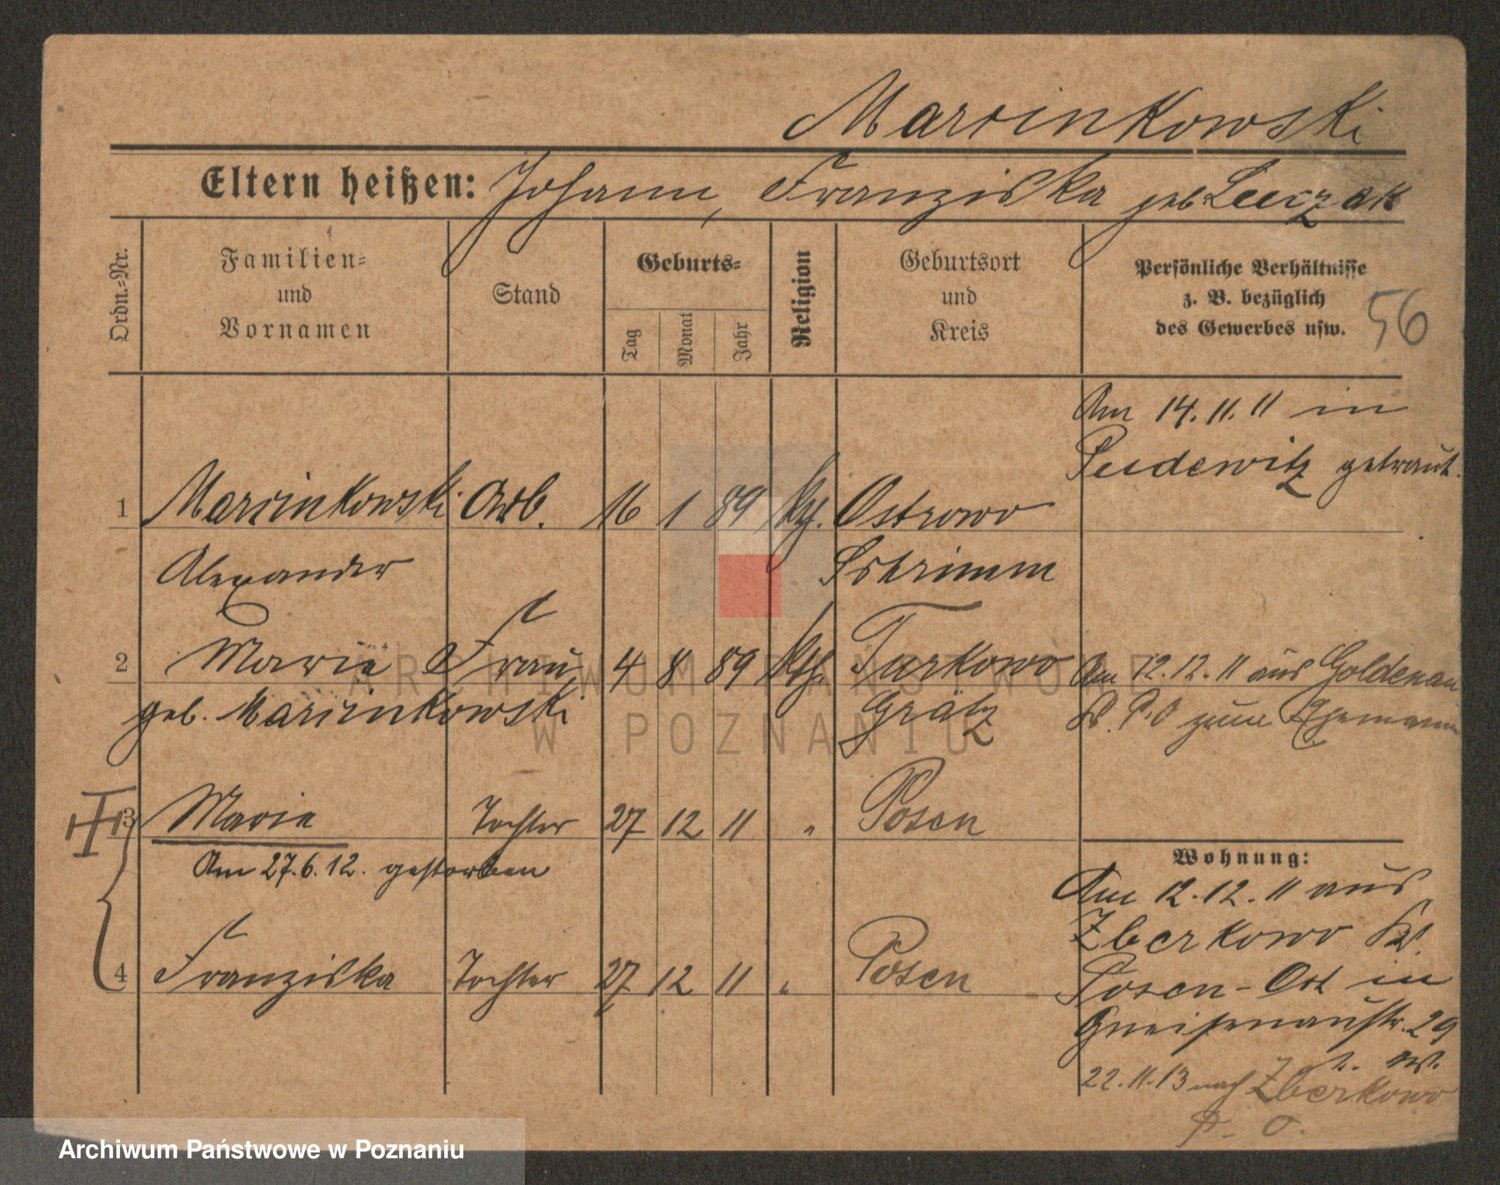 Marcinkowski
Eltern heißen: Johann, Franziska geb
Ordn.-Nr.
Familien-
und
Vornamen
Stand
Geburts-
Tag
Monat
Jahr
Religion
Geburtsort
und
Kreis
Persönliche Verhältnisse
z. B. bezüglich
des Gewerbes usw.
56
Am 14. 11. 11 in
Pudewitz getraut.
1 Marcinkowski Arb. 16 1 89 kth. Ostrowo
Alexander Schrimm
2 Marie Frau 4 8 89 kth. Turkowo Am 12. 12. 11 aus Goldenau
geb. Marcinkowski Grätz Kr. P. O zum Ehemann
3 Marie Tochter 27 12 11 " Posen
Am 27. 6. 12. gestorben
Wohnung:
Am 12. 12. 11 aus
Zberkowo Kr.
4 Franziska Tochter 27 12 11 " Posen
Posen-Ost in
Gneisenaustr. 29
22. 11. 13 nach Zberkowo
P. O.
ARCHIWUM PAŃSTWOWE
W POZNANIU
Archiwum Państwowe w Poznaniu